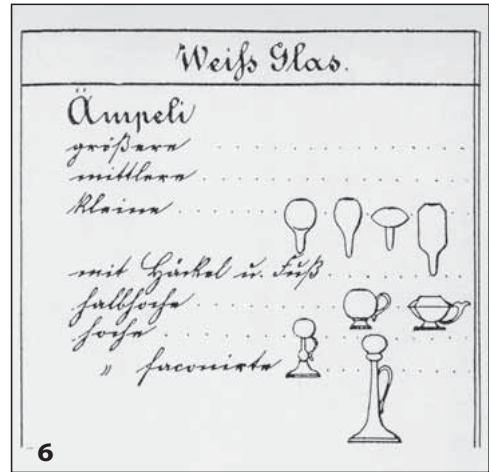 Weiſs Glas.
Ämpeli
größere
mittlere
kleine
mit Häckel u. Fuß
halbhohe
hohe
" faconirte
6